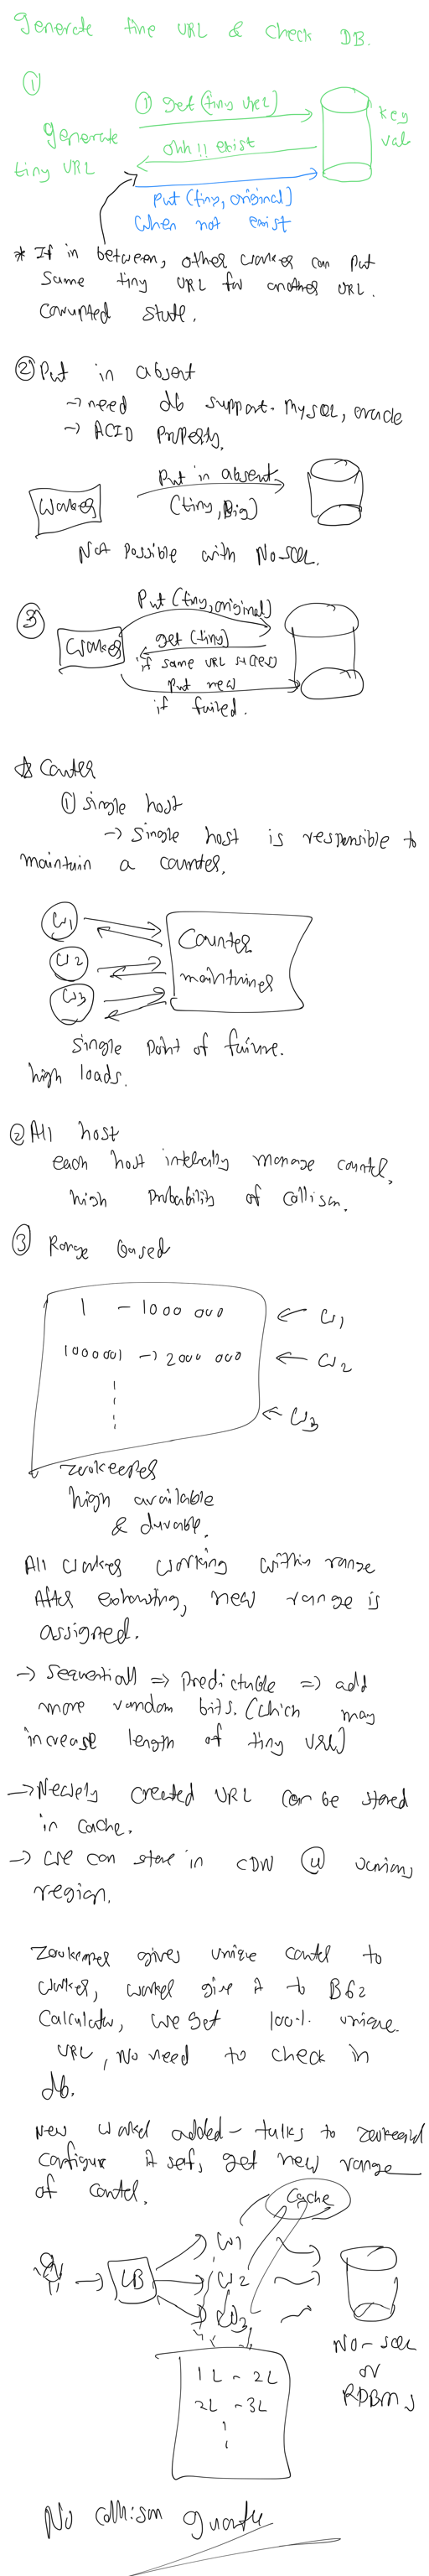 Generate tine URL & check DB.
①
① get (tiny URL)
key
val
generate
tiny URL
ohh!! exist
put (tiny, original)
when not exist
* If in between, other worker can put
same tiny URL for another URL.
Corrupted state.
② Put in absent
→ need db support. MySQL, oracle
→ ACID Property.
Put in absent
(tiny, Big)
Worker
Not possible with No-SQL.
③
Put (tiny, original)
get (tiny)
Worker
if same URL success
Put new
if failed.
Counter
① Single host
→ Single host is responsible to
maintain a counter.
W1
W2
W3
Counter
maintainer
Single point of failure.
high loads.
② All host
each host internally manage counter.
high probability of collison.
③ Range based
1 - 1000 000
← W1
1000001 → 2000 000
← W2
← W3
zookeeper
high available
& durable.
All worker working within range
After exhausting, new range is
assigned.
→ Sequentiall ⇒ Predictable ⇒ add
more random bits. (which may
increase length of tiny URL)
→ Newely created URL can be stored
in cache.
→ we can store in CDN @ various
region.
Zookeeper gives unique counter to
worker, worker give it to B62
Calculator, we get 100% unique
URL, No need to check in
db.
New worker added - talks to zookeeper
configure it self, get new range
of counter.
Cache
LB
W1
W2
W3
No-SQL
or
RDBMS
1L - 2L
2L - 3L
No collison guarantee